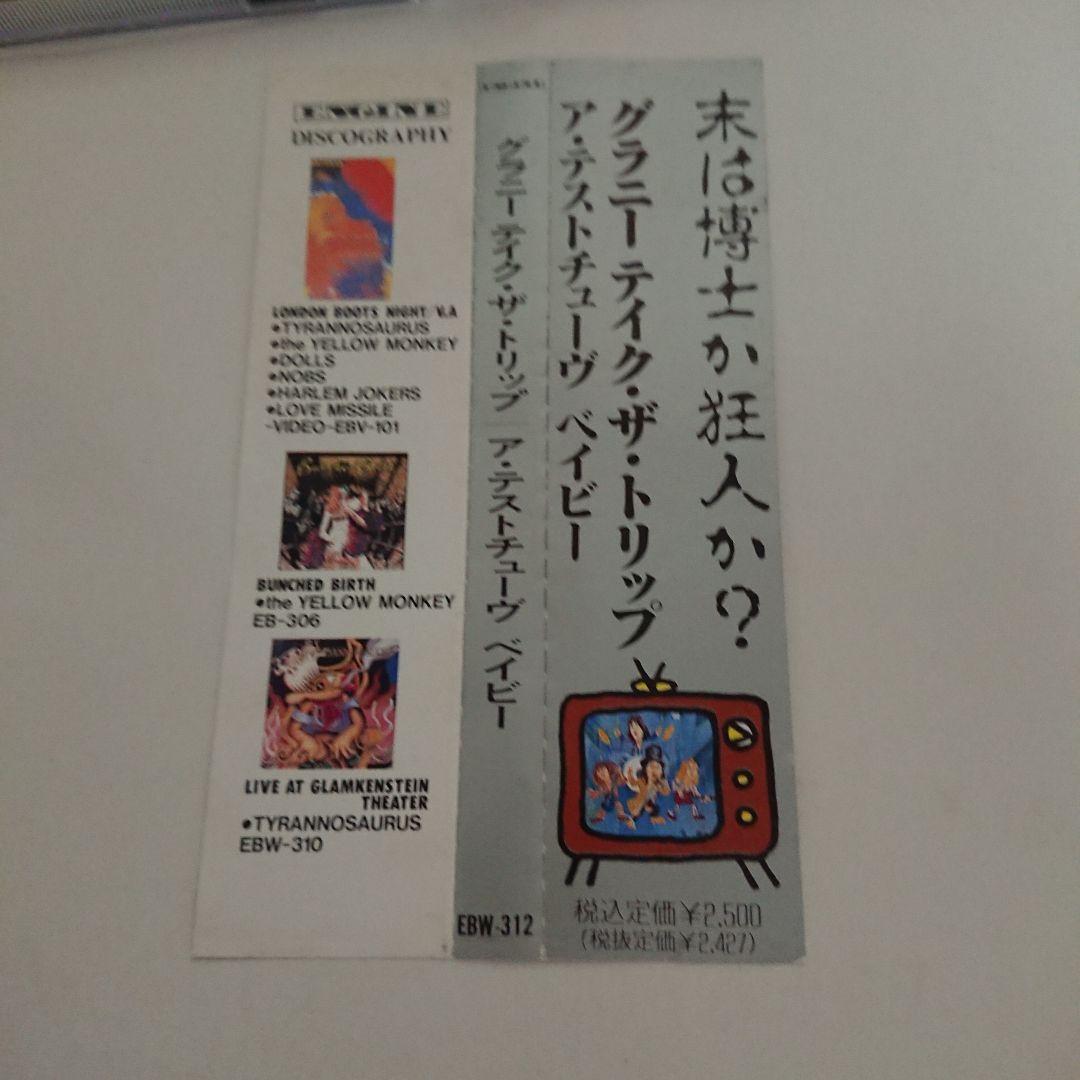 DISCOGRAPHY
LONDON BOOTS NIGHT/V.A
•TYRANNOSAURUS
•the YELLOW MONKEY
•DOLLS
•NOBS
•HARLEM JOKERS
•LOVE MISSILE
-VIDEO-EBV-101
BUNCHED BIRTH
•the YELLOW MONKEY
EB-306
LIVE AT GLAMKENSTEIN
THEATER
•TYRANNOSAURUS
EBW-310
グラニー テイク・ザ・トリップ/ア・テストチューヴ ベイビー
EBW-312
末は博士か狂人か?
グラニー テイク・ザ・トリップ
ア・テストチューヴ ベイビー
税込定価¥2,500
(税抜定価¥2,427)